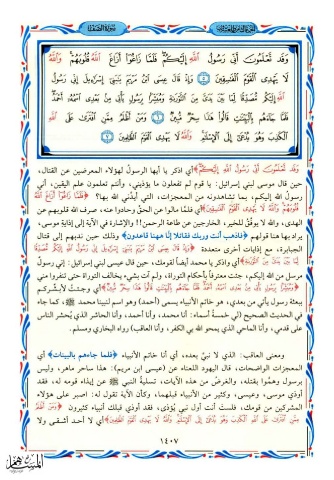 سورة الصف ٦١
وَقَد تَّعْلَمُونَ أَنِّي رَسُولُ اللَّهِ إِلَيْكُمْ فَلَمَّا زَاغُوا أَزَاغَ اللَّهُ قُلُوبَهُمْ وَاللَّهُ
لَا يَهْدِي الْقَوْمَ الْفَاسِقِينَ ٥ وَإِذْ قَالَ عِيسَى ابْنُ مَرْيَمَ يَا بَنِي إِسْرَائِيلَ إِنِّي رَسُولُ
اللَّهِ إِلَيْكُم مُّصَدِّقًا لِّمَا بَيْنَ يَدَيَّ مِنَ التَّوْرَاةِ وَمُبَشِّرًا بِرَسُولٍ يَأْتِي مِن بَعْدِي اسْمُهُ أَحْمَدُ
فَلَمَّا جَاءَهُم بِالْبَيِّنَاتِ قَالُوا هَذَا سِحْرٌ مُّبِينٌ ٦ وَمَنْ أَظْلَمُ مِمَّنِ افْتَرَى عَلَى اللَّهِ
الْكَذِبَ وَهُوَ يُدْعَى إِلَى الْإِسْلَامِ وَاللَّهُ لَا يَهْدِي الْقَوْمَ الظَّالِمِينَ ٧
﴿وَقَد تَّعْلَمُونَ أَنِّي رَسُولُ اللَّهِ إِلَيْكُمْ﴾ أي اذكر يا أيها الرسول لهؤلاء المعرضين عن القتال،
حين قال موسى لبني إسرائيل: يا قوم لم تفعلون ما يؤذيني، وأنتم تعلمون علم اليقين، أني
رسول الله إليكم، بما تشاهدونه من المعجزات، التي أيدني الله بها؟ ﴿فَلَمَّا زَاغُوا أَزَاغَ اللَّهُ
قُلُوبَهُمْ وَاللَّهُ لَا يَهْدِي الْقَوْمَ الْفَاسِقِينَ﴾ فلما مالوا عن الحق وحادوا عنه، صرف الله قلوبهم عن
الهدى، والله لا يوفق للخير، الخارجين عن طاعة الرحمن!! والإشارة في الآية إلى إذاية موسى،
يراد بها هنا قولهم ﴿فاذهب أنت وربك فقاتلا إنا ههنا قاعدون﴾ وذلك حين ندبهم إلى قتال
الجبابرة، مع إذايات أخرى متعددة ﴿وَإِذْ قَالَ عِيسَى ابْنُ مَرْيَمَ يَا بَنِي إِسْرَائِيلَ إِنِّي رَسُولُ اللَّهِ
إِلَيْكُم﴾ أي واذكر يا محمد أيضاً لقومك، حين قال عيسى لبني إسرائيل: إني رسول
مرسل من الله إليكم، جئت معترفاً بأحكام التوراة، ولم آت بشيء يخالف التوراة حتى تنفروا مني
أي وجئت لأبشركم
ببعثة رسول يأتي من بعدي، هو خاتم الأنبياء يسمى (أحمد) وهو اسم لنبينا محمد ﷺ، كما جاء
في الحديث الصحيح (لي خمسة أسماء: أنا محمد، وأنا أحمد، وأنا الحاشر الذي يُحشر الناس
على قدمي، وأنا الماحي الذي يمحو الله بي الكفر، وأنا العاقب) رواه البخاري ومسلم.
ومعنى العاقب: الذي لا نبي بعده، أي أنا خاتم الأنبياء ﴿فلما جاءهم بالبينات﴾ أي
المعجزات الواضحات، قال اليهود اللعناء عن (عيسى ابن مريم): هذا ساحر ماهر، وليس
برسول وهموا بقتله، والغرض من هذه الآيات، تسلية النبي ﷺ عن إيذاء قومه له، فقد
أوذي موسى، وعيسى، وكثير من الأنبياء قبلهما، وكأن الآية تقول له: اصبر على هؤلاء
المشركين من قومك، فلست أنت أول نبي يُؤذى، فقد أوذي قبلك أنبياء كثيرون ﴿وَمَنْ أَظْلَمُ
مِمَّنِ افْتَرَى عَلَى اللَّهِ الْكَذِبَ وَهُوَ يُدْعَى إِلَى الْإِسْلَامِ وَاللَّهُ لَا يَهْدِي الْقَوْمَ الظَّالِمِينَ﴾ أي لا أحد أشقى ولا
١٤٠٧